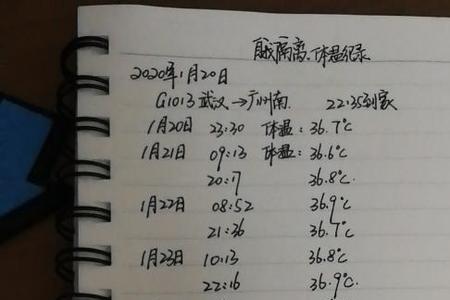 自我隔离、体温纪录
2020年1月20日
G1013 武汉→广州南 22:35到家
1月20日 23:30 体温: 36.7℃
1月21日 09:13 体温: 36.6℃
20:17 36.8℃.
1月22日 08:52 36.9℃
21:36 36.7℃
1月23日 10:13 36.8℃
22:16 36.9℃.